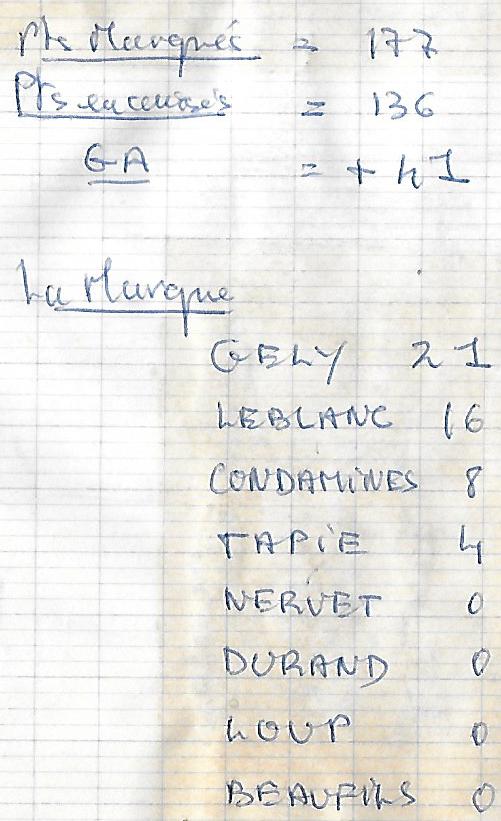 Pts Marqués = 177
Pts encaissés = 136
GA = + 41
La Marque
GELY 21
LEBLANC 16
CONDAMINES 8
TAPIE 4
NERVET 0
DURAND 0
LOUP 0
BEAUFILS 0